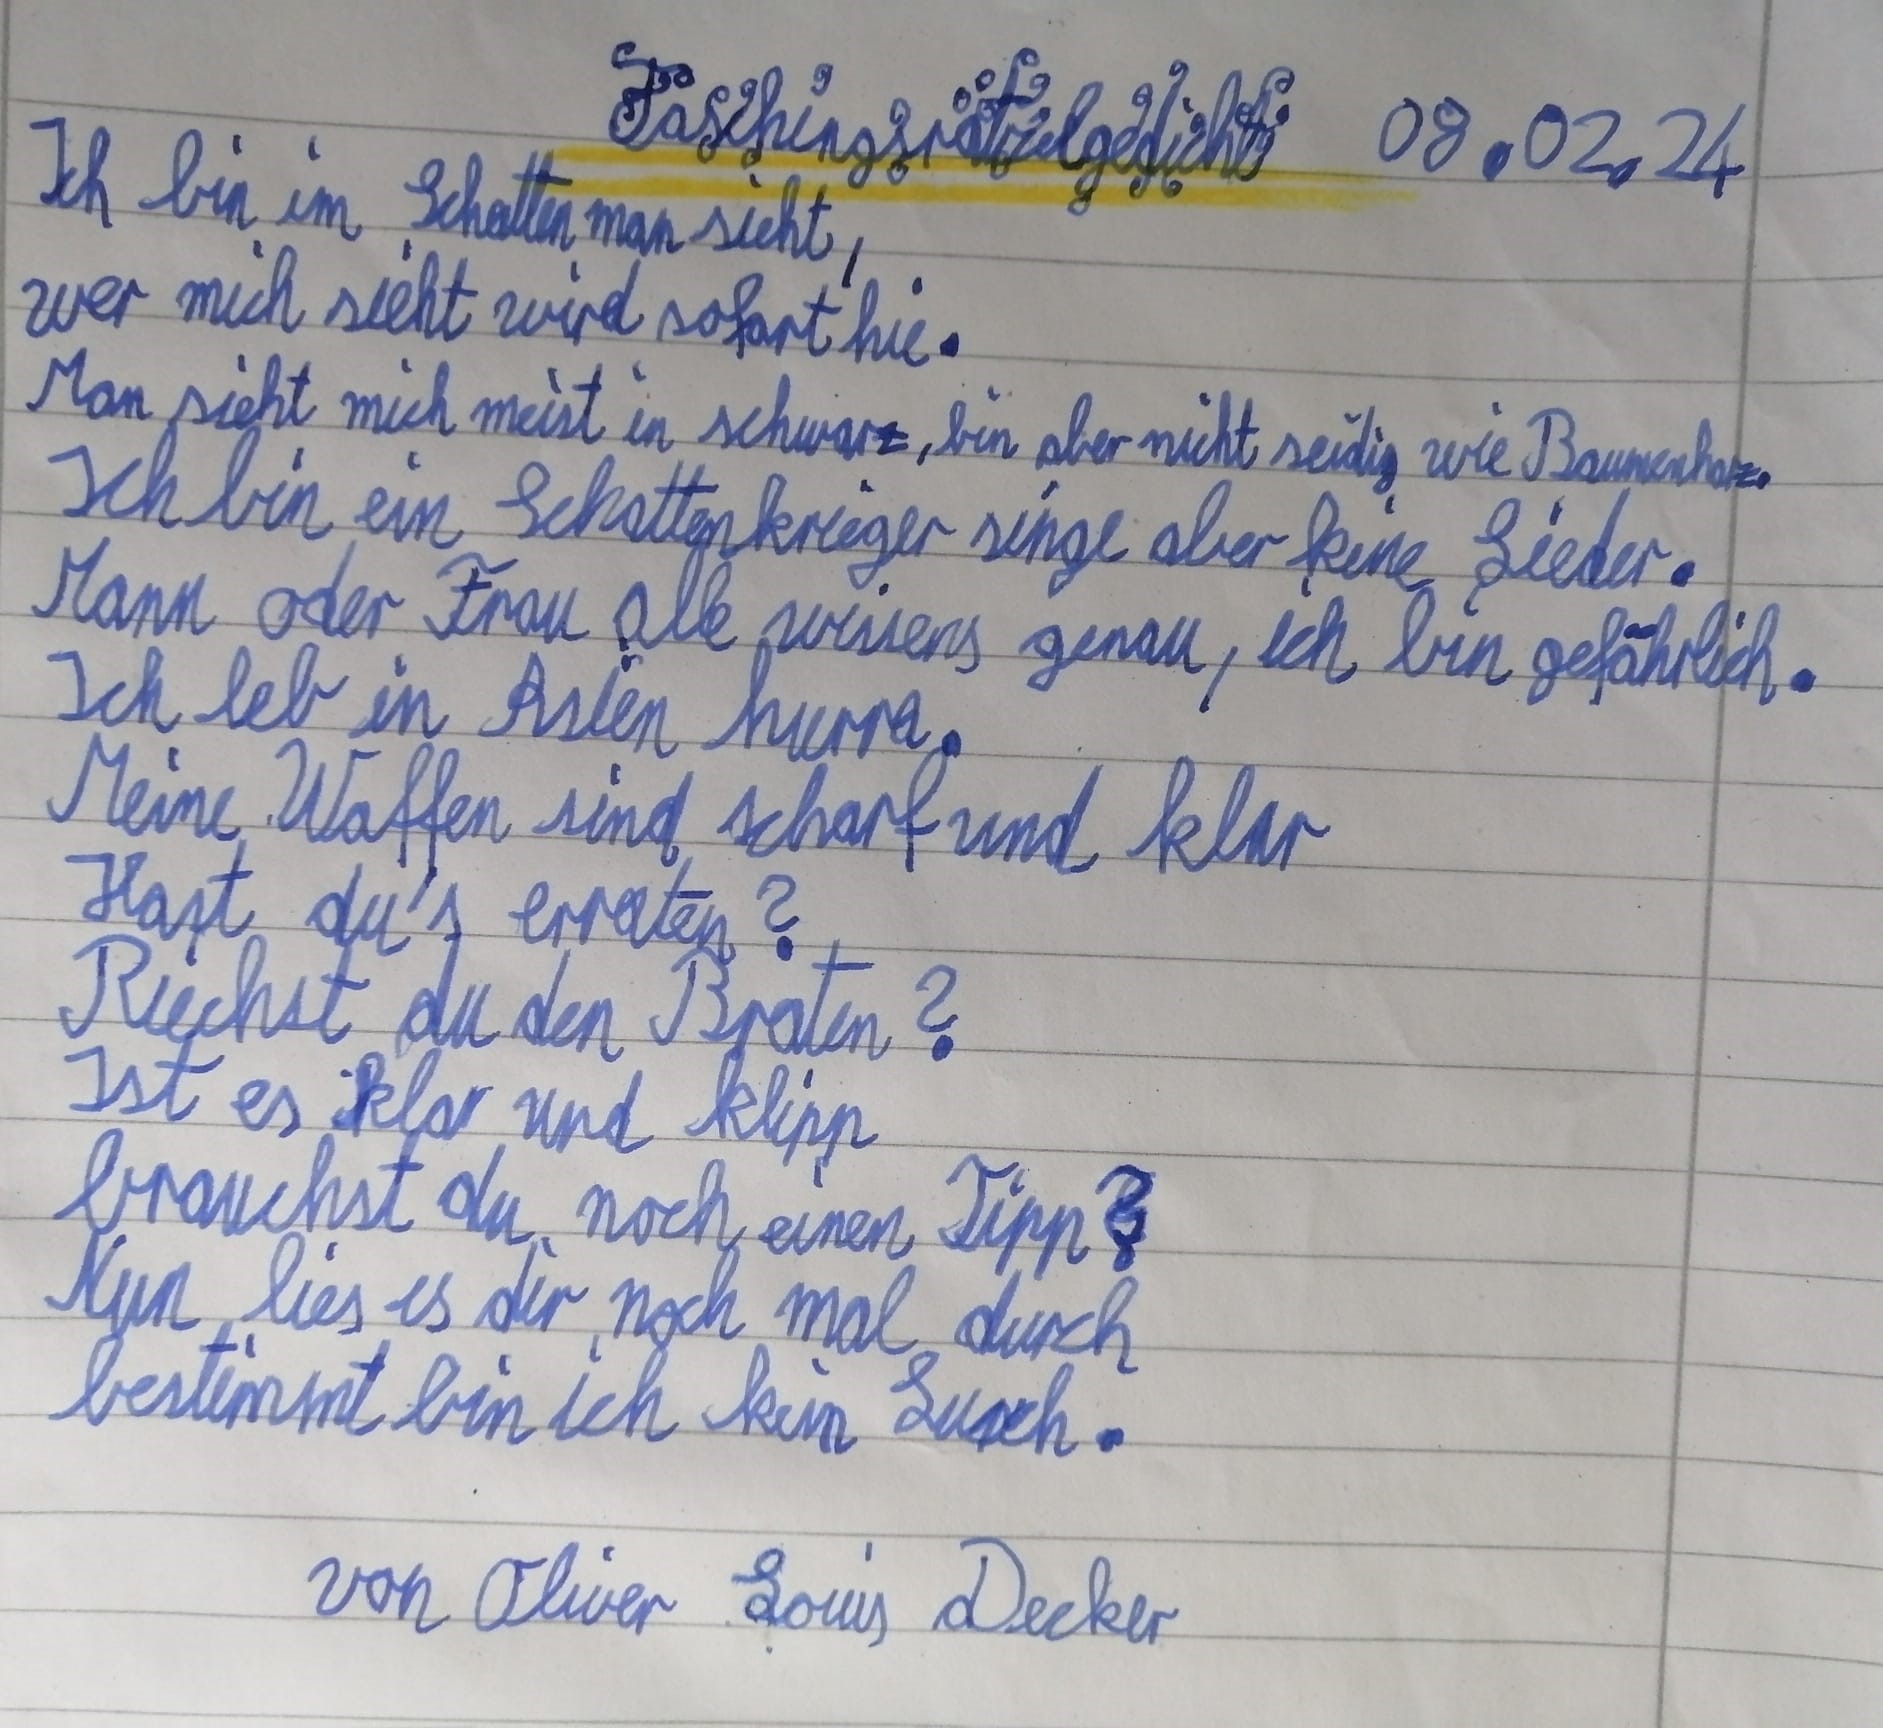 Faschingsrätselgedicht 08.02.24
Ich bin im Schatten man sieht,
wer mich sieht wird sofort hie.
Man sieht mich meist in schwarz, bin aber nicht seidig wie Baumenharz.
Ich bin ein Schattenkrieger singe aber keine Lieder.
Mann oder Frau alle wissens genau, ich bin gefährlich.
Ich leb in Asien hurra.
Meine Waffen sind scharf und klar
Hast du's erraten?
Riechst du den Braten?
Ist es klar und klipp
brauchst du noch einen Tipp?
Nun lies es dir noch mal durch
bestimmt bin ich kein Lurch.
von Oliver Louis Decker